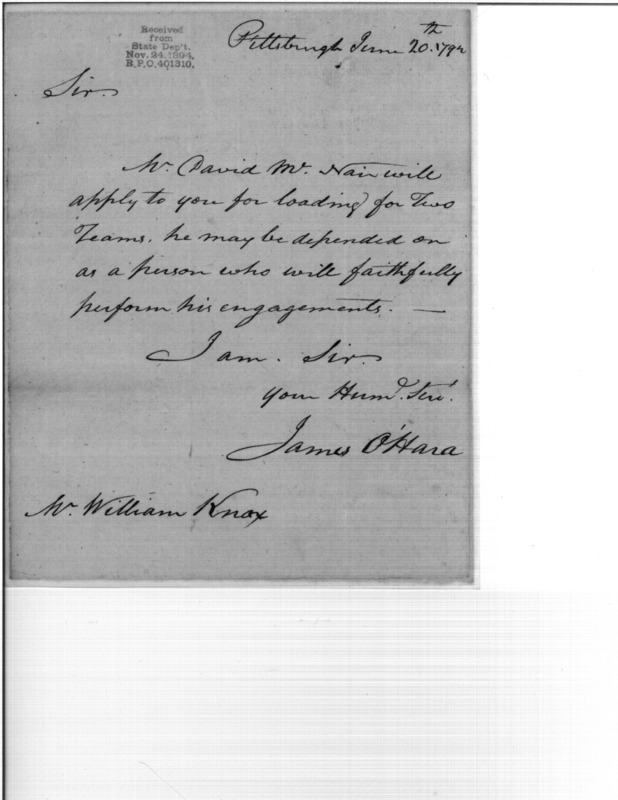 Received
from
State Dep't.
Nov. 24. 1894.
R.P.O. 401310.
Pittsburgh June 20.th 1792
Sir.
Mr. David Mc. Nair will
apply to you for loading for Two
Teams. he may be depended on
as a person who will faithfully
perform his engagements. —
I am. Sir.
your Humd. Servt.
James O'Hara
Mr. William Knox